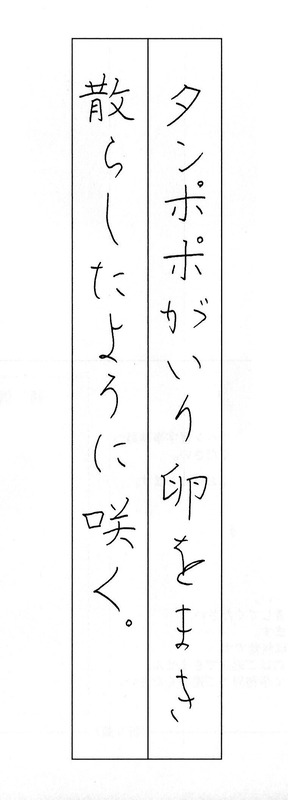 タンポポがいり卵をまき
散らしたように咲く。